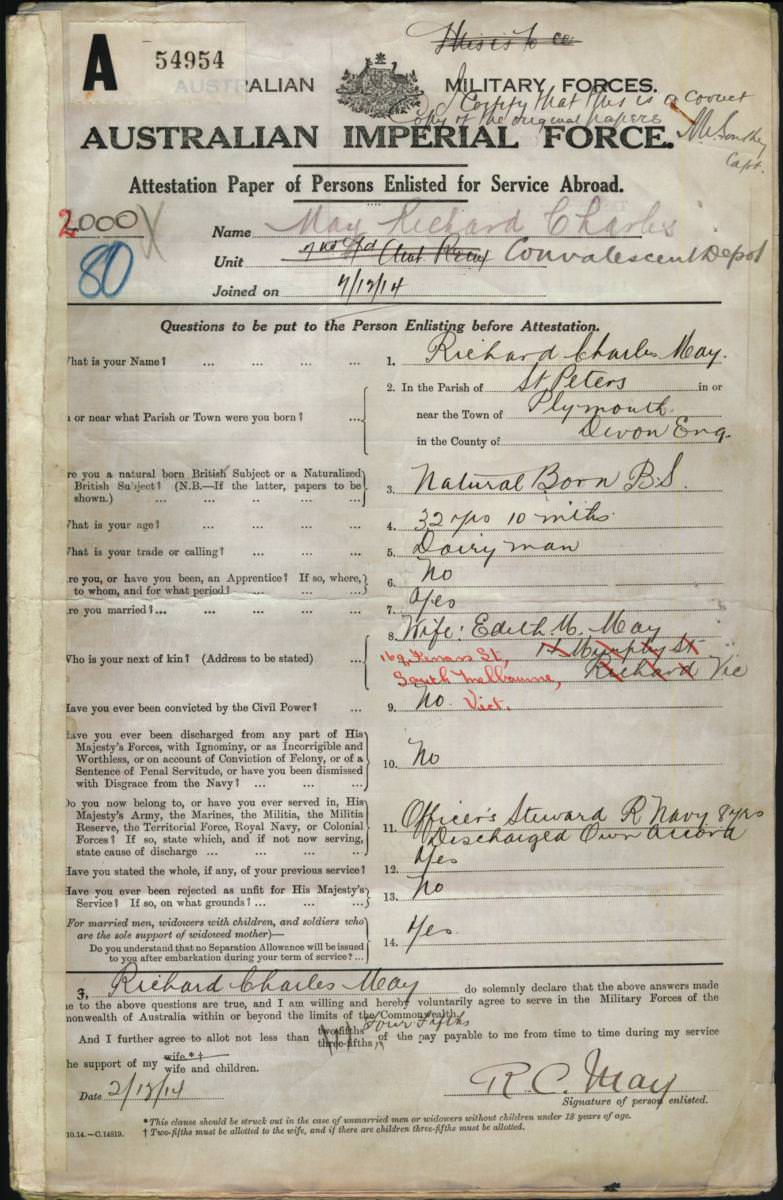 This is to ce
A 54954
AUSTRALIAN MILITARY FORCES.
I Certify that this is a correct
Copy of the original papers
AUSTRALIAN IMPERIAL FORCE.
Capt.
Attestation Paper of Persons Enlisted for Service Abroad.
2000 X
80
Name May Richard Charles
Unit 2nd Convalescent Depot
Joined on 4/12/14
Questions to be put to the Person Enlisting before Attestation.
hat is your Name? ... ... ... ... 1. Richard Charles May.
2. In the Parish of St Peters in or
n or near what Parish or Town were you born? ... near the Town of Plymouth
in the County of Devon Eng.
re you a natural born British Subject or a Naturalized
British Subject? (N.B.—If the latter, papers to be
shown.) ... ... ... ... 3. Natural Born B.S.
hat is your age? ... ... ... ... 4. 32 yrs 10 mths.
hat is your trade or calling? ... ... ... 5. Dairyman
re you, or have you been, an Apprentice? If so, where,
to whom, and for what period? ... ... ... 6. No
re you married?... ... ... ... ... 7. Yes
8. Wife: Edith M. May
Who is your next of kin? (Address to be stated) ... Murphy St
South Melbourne, Richard Vic
Vict.
Have you ever been convicted by the Civil Power? ... 9. No.
Have you ever been discharged from any part of His
Majesty's Forces, with Ignominy, or as Incorrigible and
Worthless, or on account of Conviction of Felony, or of a
Sentence of Penal Servitude, or have you been dismissed
with Disgrace from the Navy? ... ... ... 10. No
Do you now belong to, or have you ever served in, His
Majesty's Army, the Marines, the Militia, the Militia
Reserve, the Territorial Force, Royal Navy, or Colonial
Forces? If so, state which, and if not now serving,
state cause of discharge ... ... ... ... 11. Officer's Steward R Navy 8 yrs
Discharged Own Accord
Have you stated the whole, if any, of your previous service? 12. Yes
Have you ever been rejected as unfit for His Majesty's
Service? If so, on what grounds? ... ... ... 13. No
(For married men, widowers with children, and soldiers who
are the sole support of widowed mother)—
Do you understand that no Separation Allowance will be issued
to you after embarkation during your term of service? ... 14. Yes
I, Richard Charles May do solemnly declare that the above answers made
me to the above questions are true, and I am willing and hereby voluntarily agree to serve in the Military Forces of the
monwealth of Australia within or beyond the limits of the Commonwealth.
Four Fifths
And I further agree to allot not less than two-fifths three-fifths of the pay payable to me from time to time during my service
he support of my wife * †
wife and children.
Date 2/12/14 R. C. May
Signature of person enlisted.
* This clause should be struck out in the case of unmarried men or widowers without children under 18 years of age.
10.14.—C.14819. † Two-fifths must be allotted to the wife, and if there are children three-fifths must be allotted.